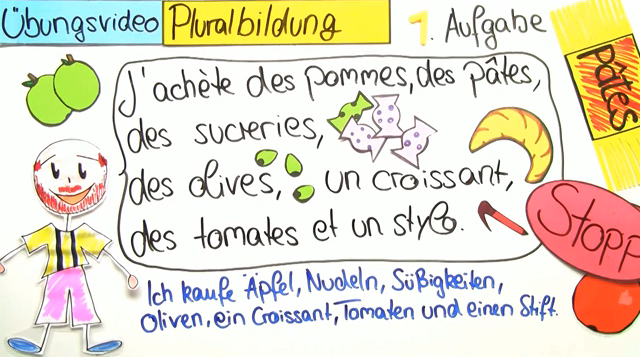 Übungsvideo Pluralbildung 1. Aufgabe
J'achète des pommes, des pâtes,
des sucreries,
des olives, un croissant,
des tomates et un stylo.
Ich kaufe Äpfel, Nudeln, Süßigkeiten,
Oliven, ein Croissant, Tomaten und einen Stift.
pâtes
Stopp